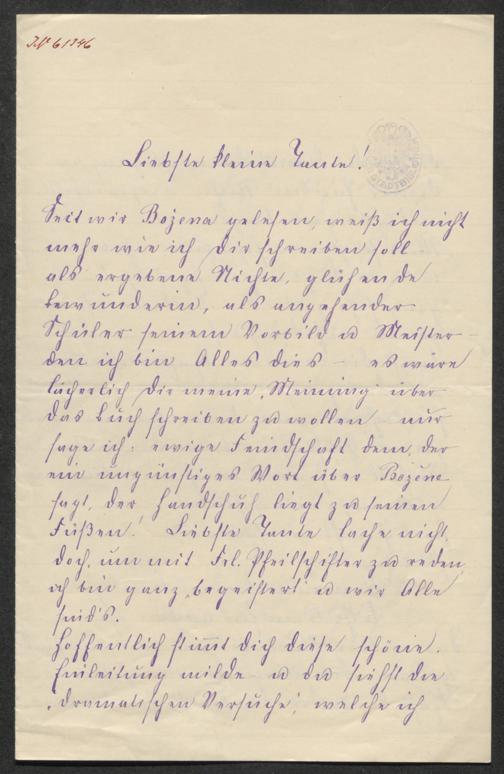 IN 61346
Liebste kleine Tante!
Seit wir Božena gelesen, weiß ich nicht
mehr wie ich Dir schreiben soll
als ergebene Nichte, glühende
Bewunderin, als angehender
Schüler seinem Vorbild u Meister –
denn ich bin Alles dies – es wäre
lächerlich Dir meine „Meinung“ über
das Buch schreiben zu wollen nur
sage ich: ewige Feindschaft dem, der
ein ungünstiges Wort über Božena
sagt, der Handschuh liegt zu seinen
Füßen! Liebste Tante lache nicht,
doch, um mit Frl. Pfeilschifter zu reden,
ich bin ganz „begeistert“ u wir Alle
sind's.
Hoffentlich stimmt Dich diese schöne
Einleitung milde u du siehst die
„dramatischen Versuche“, welche ich